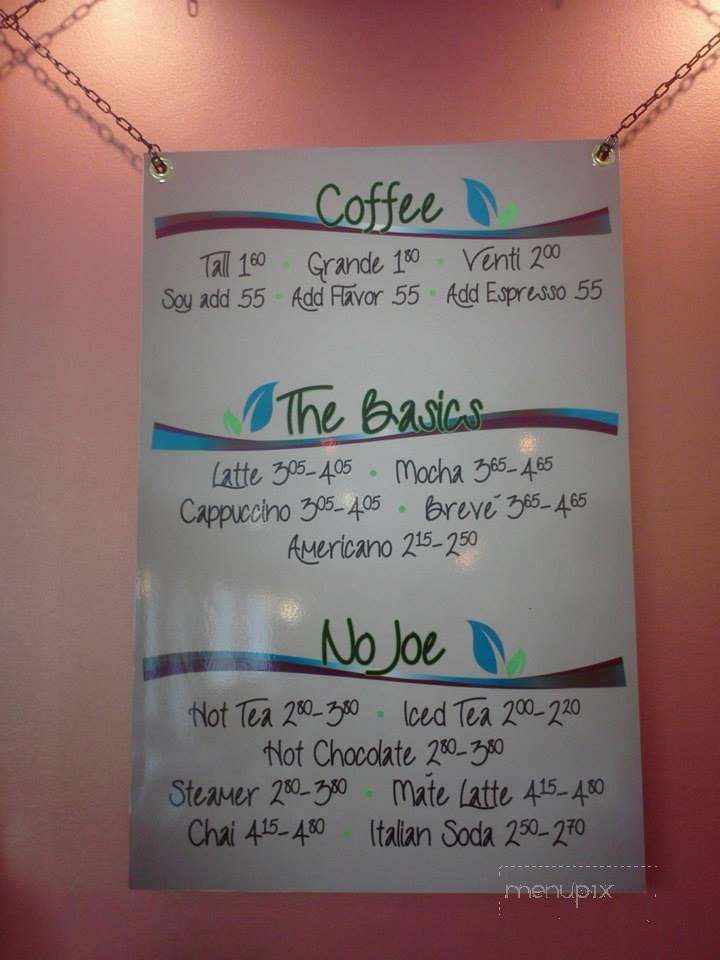 Coffee
Tall 1.60 • Grande 1.80 • Venti 2.00
Soy add .55 • Add Flavor .55 • Add Espresso .55
The Basics
Latte 3.05-4.05 • Mocha 3.65-4.65
Cappuccino 3.05-4.05 • Brevé 3.65-4.65
Americano 2.15-2.50
No Joe
Hot Tea 2.80-3.80 • Iced Tea 2.00-2.20
Hot Chocolate 2.80-3.80
Steamer 2.80-3.80 • Maté Latte 4.15-4.80
Chai 4.15-4.80 • Italian Soda 2.50-2.70
menupix